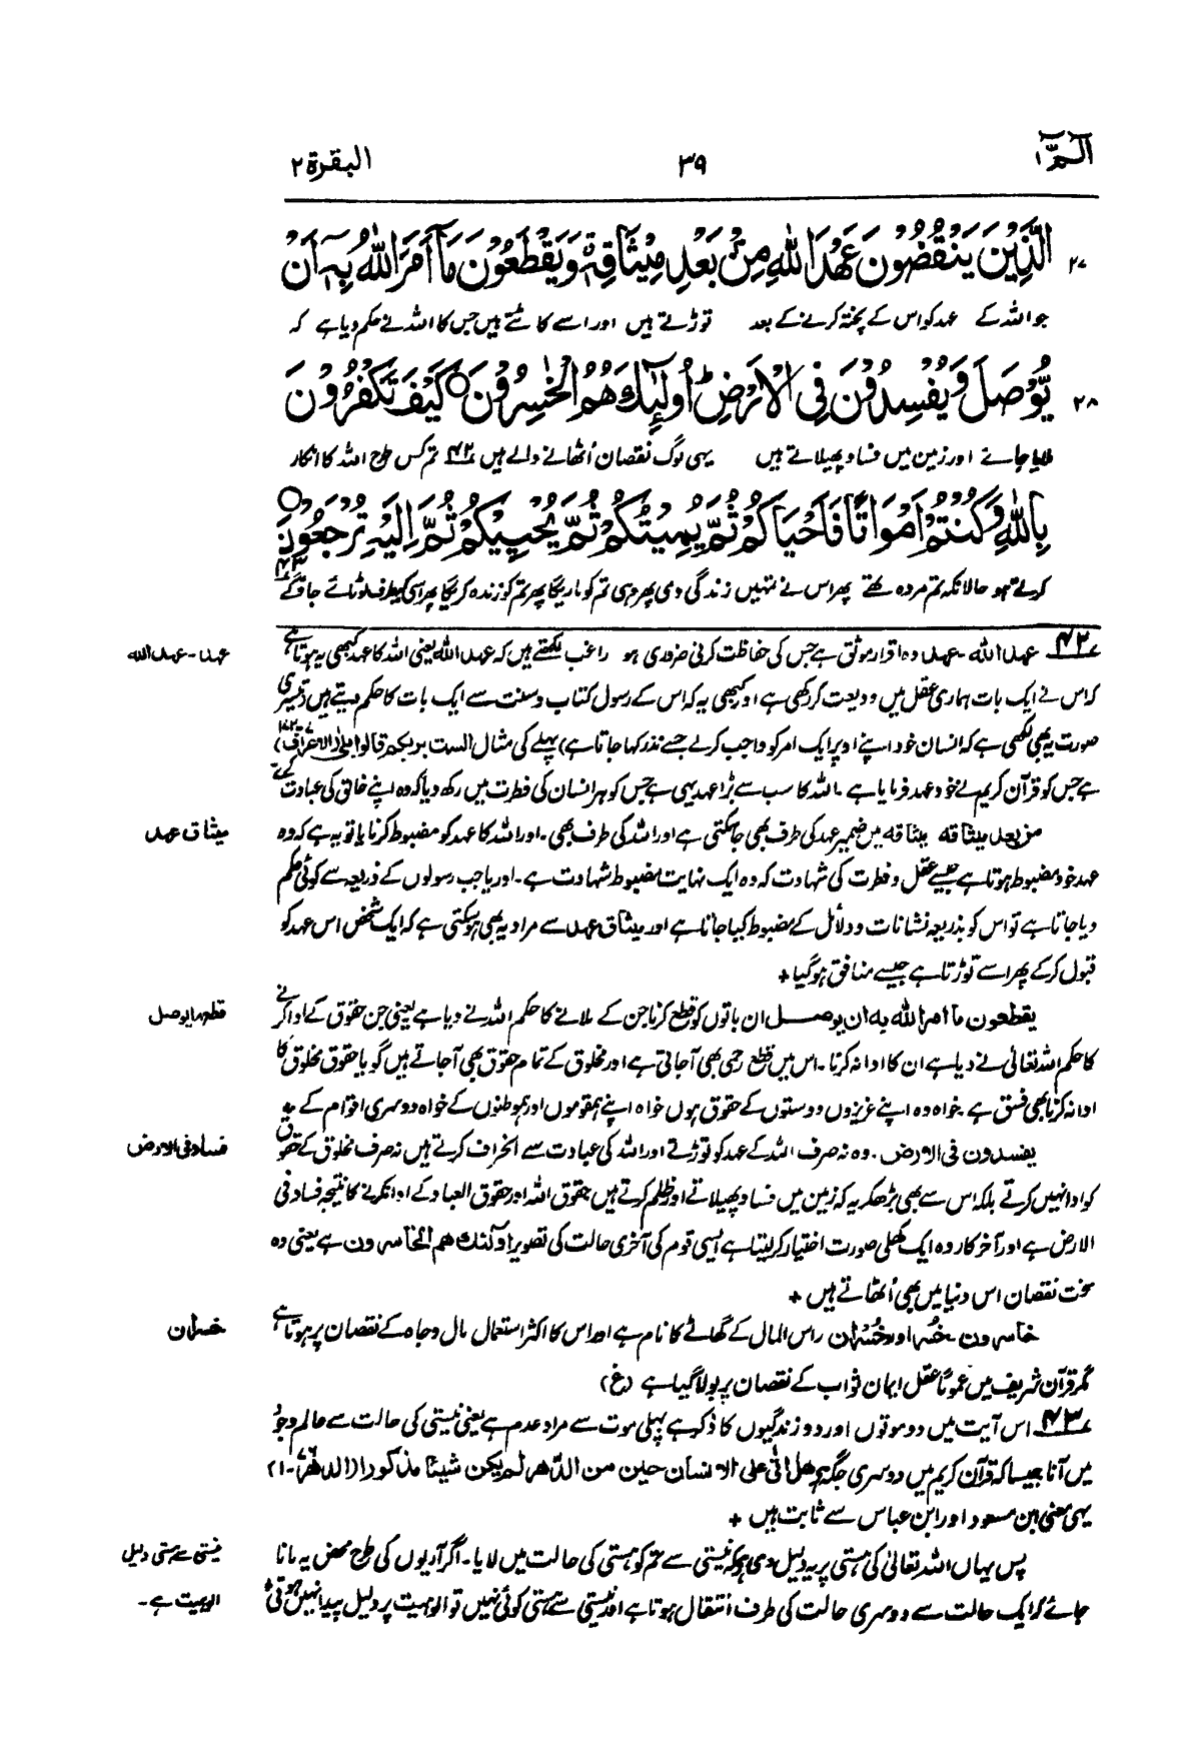 الٓمّٓ ۱
۳۹
البقرة ۲
۲۷ الَّذِيْنَ يَنْقُضُوْنَ عَهْدَ اللّٰهِ مِنْۢ بَعْدِ مِيْثَاقِهٖ وَيَقْطَعُوْنَ مَآ اَمَرَ اللّٰهُ بِهٖٓ اَنْ
جو اللہ کے عہد کو اس کے پختہ کرنے کے بعد توڑتے ہیں اور اسے کاٹتے ہیں جس کا اللہ نے حکم دیا ہے کہ
۲۸ يُّوْصَلَ وَيُفْسِدُوْنَ فِى الْاَرْضِ ؕ اُولٰٓئِكَ هُمُ الْخٰسِرُوْنَ ○ كَيْفَ تَكْفُرُوْنَ
ملایا جائے اور زمین میں فساد پھیلاتے ہیں یہی لوگ نقصان اُٹھانے والے ہیں ۴۲ تم کس طرح اللہ کا انکار
بِاللّٰهِ وَكُنْتُمْ اَمْوَاتًا فَاَحْيَاكُمْ ثُمَّ يُمِيْتُكُمْ ثُمَّ يُحْيِيْكُمْ ثُمَّ اِلَيْهِ تُرْجَعُوْنَ ○
کرتے ہو حالانکہ تم مردہ تھے پھر اس نے تمہیں زندگی دی پھر وہی تم کو ماریگا پھر تم کو زندہ کریگا پھر اسی کیطرف لوٹائے جاؤگے ۴۳
عہد - عہد اللہ
۴۲ عہد اللہ - عہد وہ اقرار موثق ہے جس کی حفاظت کرنی ضروری ہو راغب لکھتے ہیں کہ عہد اللہ یعنی اللہ کا عہد کبھی یہ ہوتا ہے
کہ اس نے ایک بات ہماری عقل میں ودیعت کر رکھی ہے اور کبھی یہ کہ اس کے رسول کتاب و سنت سے ایک بات کا حکم دیتے ہیں (تیسری
صورت یہ بھی لکھی ہے کہ انسان خود اپنے اوپر ایک امر کو واجب کرلے جسے نذر کہا جاتا ہے) پہلے کی مثال الست بربکم قالوا بلیٰ (الاعراف ۷-۱۷۲)
ہے جس کو قرآن کریم نے خود عہد فرمایا ہے۔ اللہ کا سب سے بڑا عہد یہی ہے جس کو ہر انسان کی فطرت میں رکھ دیا کہ وہ اپنے خالق کی عبادت کرے
میثاق عہد
من بعد میثاقہ میثاقہ میں ضمیر عہد کی طرف بھی جا سکتی ہے اور اللہ کی طرف بھی۔ اور اللہ کا عہد کو مضبوط کرنا یا تو یہ ہے کہ وہ
عہد خود مضبوط ہوتا ہے جیسے عقل و فطرت کی شہادت کہ وہ ایک نہایت مضبوط شہادت ہے۔ اور یا جب رسولوں کے ذریعہ سے کوئی حکم
دیا جاتا ہے تو اس کو بذریعہ نشانات و دلائل کے مضبوط کیا جاتا ہے اور میثاق عہد سے مراد یہ بھی ہو سکتی ہے کہ ایک شخص اس عہد کو
قبول کر کے پھر اسے توڑتا ہے جیسے منافق ہو گیا +
قطع مایوصل
یقطعون ما امر اللہ بہ ان یوصل ان باتوں کو قطع کرنا جن کے ملانے کا حکم اللہ نے دیا ہے یعنی جن حقوق کے ادا کرنے
کا حکم اللہ تعالیٰ نے دیا ہے ان کا ادا نہ کرنا۔ اس میں قطع رحمی بھی آجاتی ہے اور مخلوق کے تمام حقوق بھی آجاتے ہیں گویا حقوق مخلوق کا
ادا نہ کرنا بھی فسق ہے خواہ وہ اپنے عزیزوں دوستوں کے حقوق ہوں خواہ اپنے ہمقوموں اور ہموطنوں کے خواہ دوسری اقوام کے
فساد فی الارض
یفسدون فی الارض۔ وہ نہ صرف اللہ کے عہد کو توڑتے اور اللہ کی عبادت سے انحراف کرتے ہیں نہ صرف مخلوق کے حقوق
کو ادا نہیں کرتے بلکہ اس سے بھی بڑھکر یہ کہ زمین میں فساد پھیلاتے اور ظلم کرتے ہیں حقوق اللہ اور حقوق العباد کے ادا نکرنے کا نتیجہ فساد فی
الارض ہے اور آخر کار وہ ایک کھلی صورت اختیار کر لیتا ہے ایسی قوم کی آخری حالت کی تصویر اولئک ھم الخاسرون ہے یعنی وہ
سخت نقصان اس دنیا میں بھی اُٹھاتے ہیں +
خسران
خاسرون خُسْر اور خُسْران راس المال کے گھاٹے کا نام ہے اور اس کا اکثر استعمال مال و جاہ کے نقصان پر ہوتا ہے
مگر قرآن شریف میں عموماً عقل ایمان ثواب کے نقصان پر بولا گیا ہے (غ)
۴۳ اس آیت میں دو موتوں اور دو زندگیوں کا ذکر ہے پہلی موت سے مراد عدم ہے یعنی نیستی کی حالت سے عالم وجود
میں آنا جیسا کہ قرآن کریم میں دوسری جگہ ہے ھل اتیٰ علی الانسان حین من الدھر لم یکن شیئا مذکورا (الدھر ۷۶-۱)
یہی معنی ابن مسعود اور ابن عباس سے ثابت ہیں +
نیستی سے ہستی دلیل
پس یہاں اللہ تعالیٰ کی ہستی پر یہ دلیل دی ہے کہ نیستی سے تم کو ہستی کی حالت میں لایا۔ اگر آریوں کی طرح محض یہ مانا
الوہیت ہے۔
جائے کہ ایک حالت سے دوسری حالت کی طرف انتقال ہوتا ہے اور نیستی سے ہستی کوئی نہیں تو الوہیت پر دلیل پیدا نہیں ہوتی